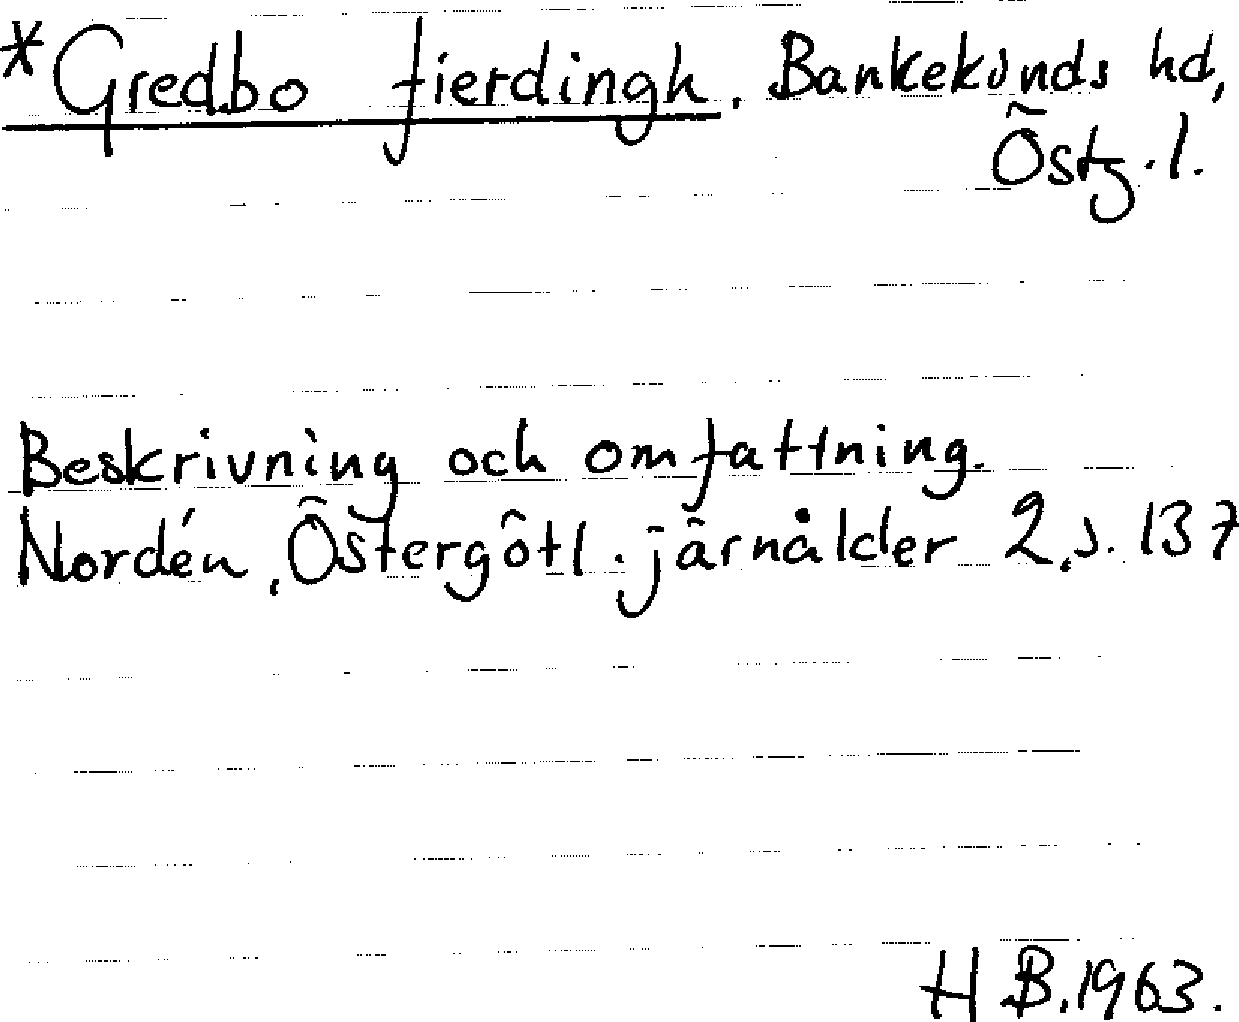 *Gredbo fierdingh, Bankekinds hd,
Östg.l.
Beskrivning och omfattning.
Nordén, Östergötl. järnålder 2, s. 137
H B. 1963.